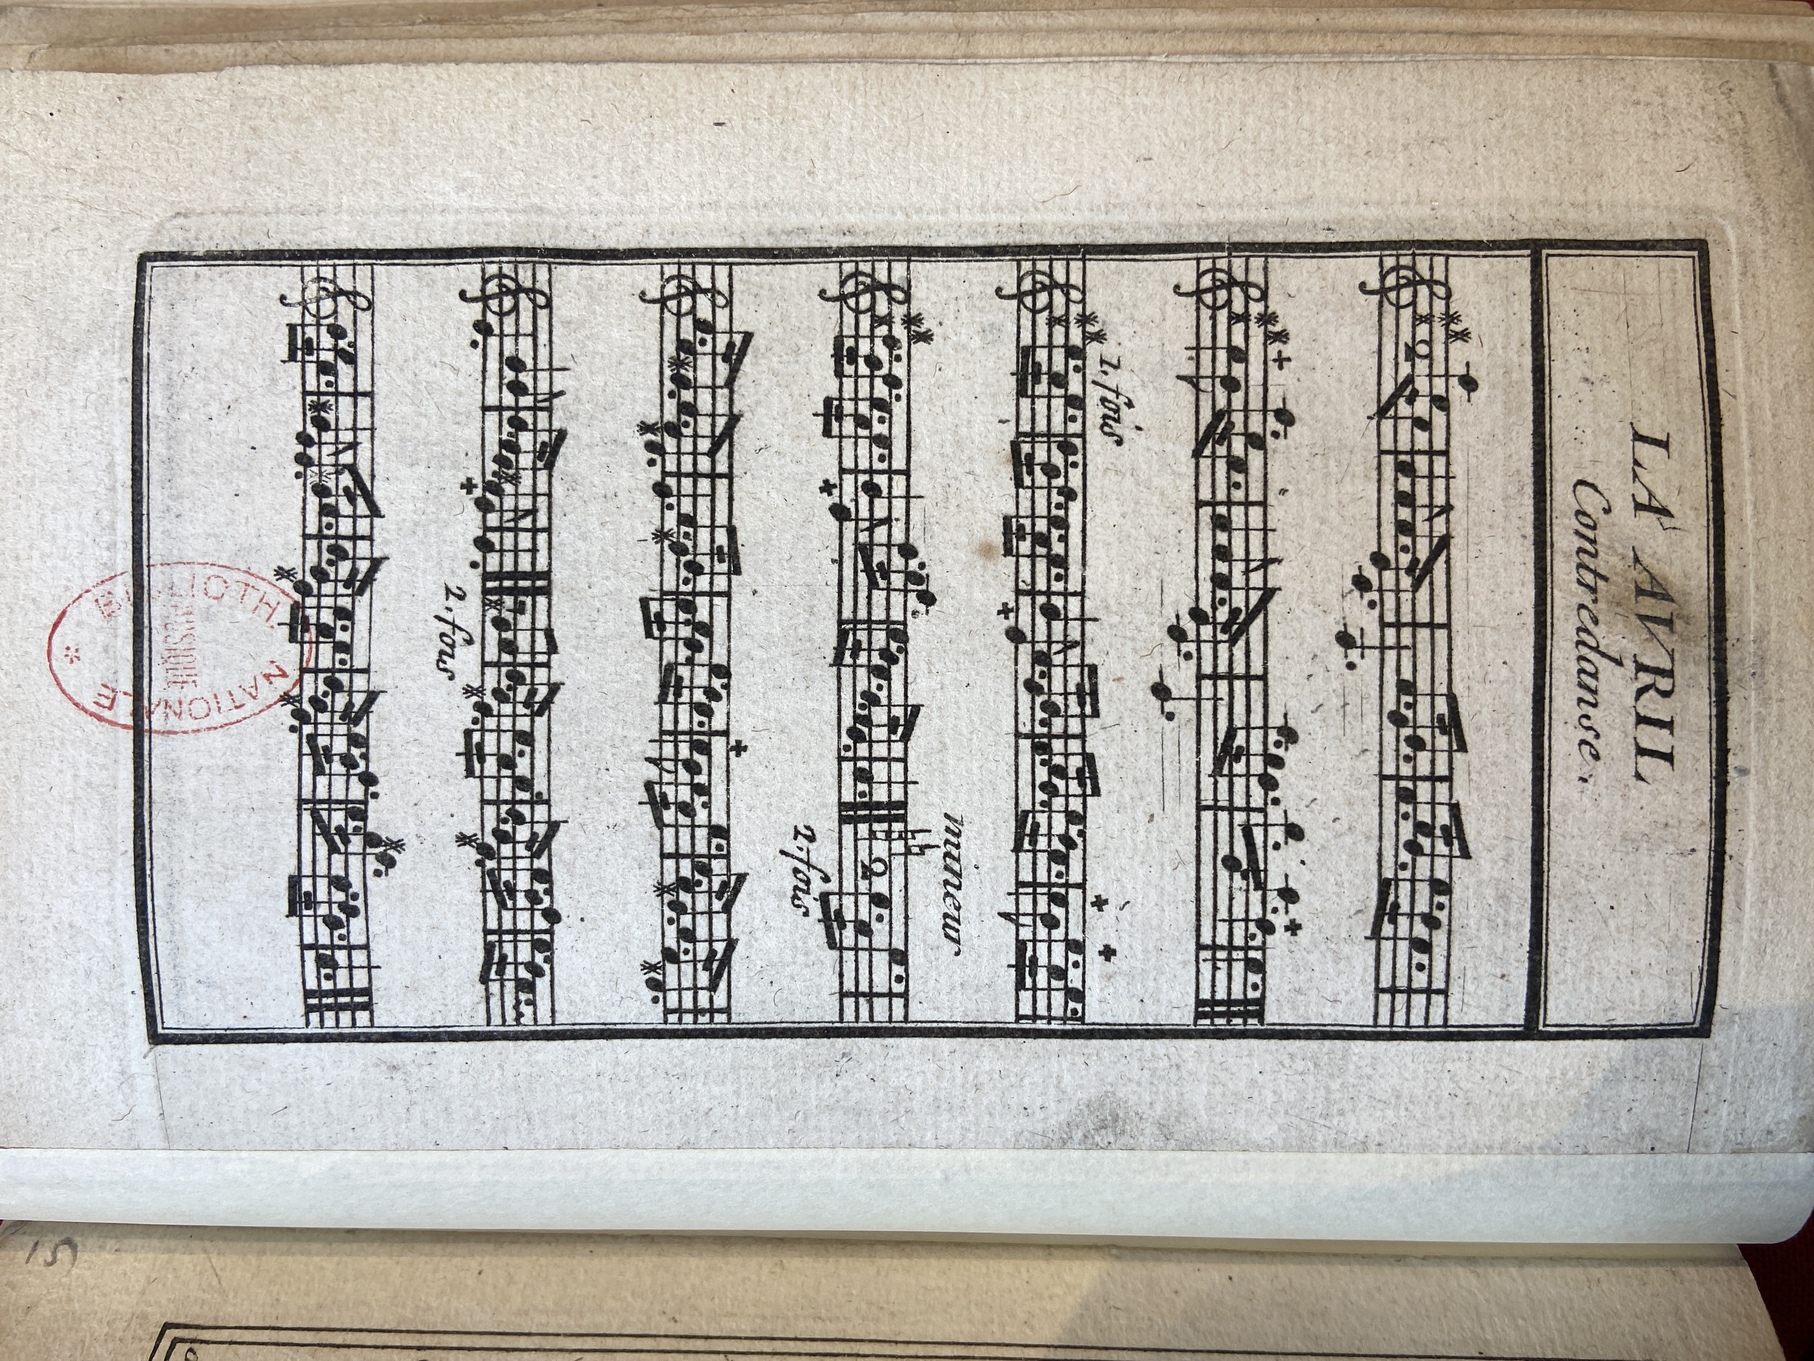 LA AVRIL
Contredanse.
2
2. fois
mineur
2
2. fois
2. fois
BIBLIOTH. NATIONALE
MUSIQUE
15